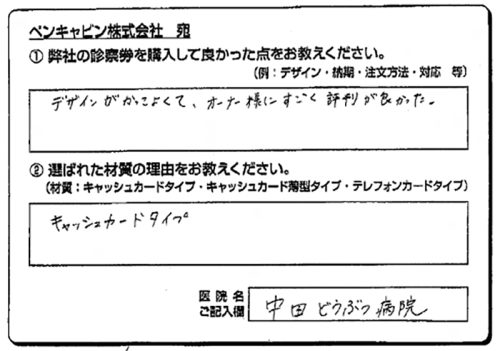 ペンキャビン株式会社 宛
① 弊社の診察券を購入して良かった点をお教えください。
(例：デザイン・納期・注文方法・対応 等)
デザインがかっこよくて、オーナー様にすごく評判が良かった。
② 選ばれた材質の理由をお教えください。
(材質：キャッシュカードタイプ・キャッシュカード薄型タイプ・テレフォンカードタイプ)
キャッシュカードタイプ
医院名
ご記入欄
中田どうぶつ病院